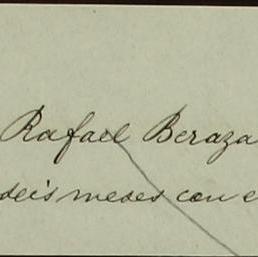 Rafael Beraza
seis meses con e